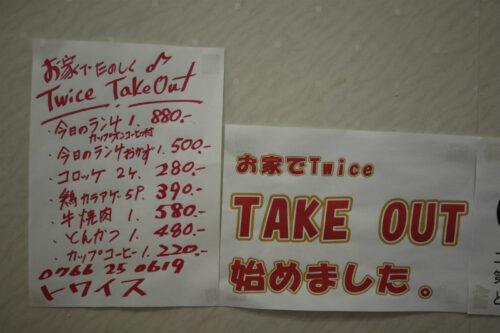 お家でたのしく♪
Twice TakeOut
・今日のランチ 1. 880.-
カップスープ・コーヒー付
・今日のランチおかず 1. 500.-
・コロッケ 2ケ. 280.-
・鶏カラアゲ 5P. 390.-
・牛焼肉 1. 580.-
・とんかつ 1. 480.-
・カップコーヒー 1. 220.-
0766 25 0619
トワイス
お家でTwice
TAKE OUT
始めました。